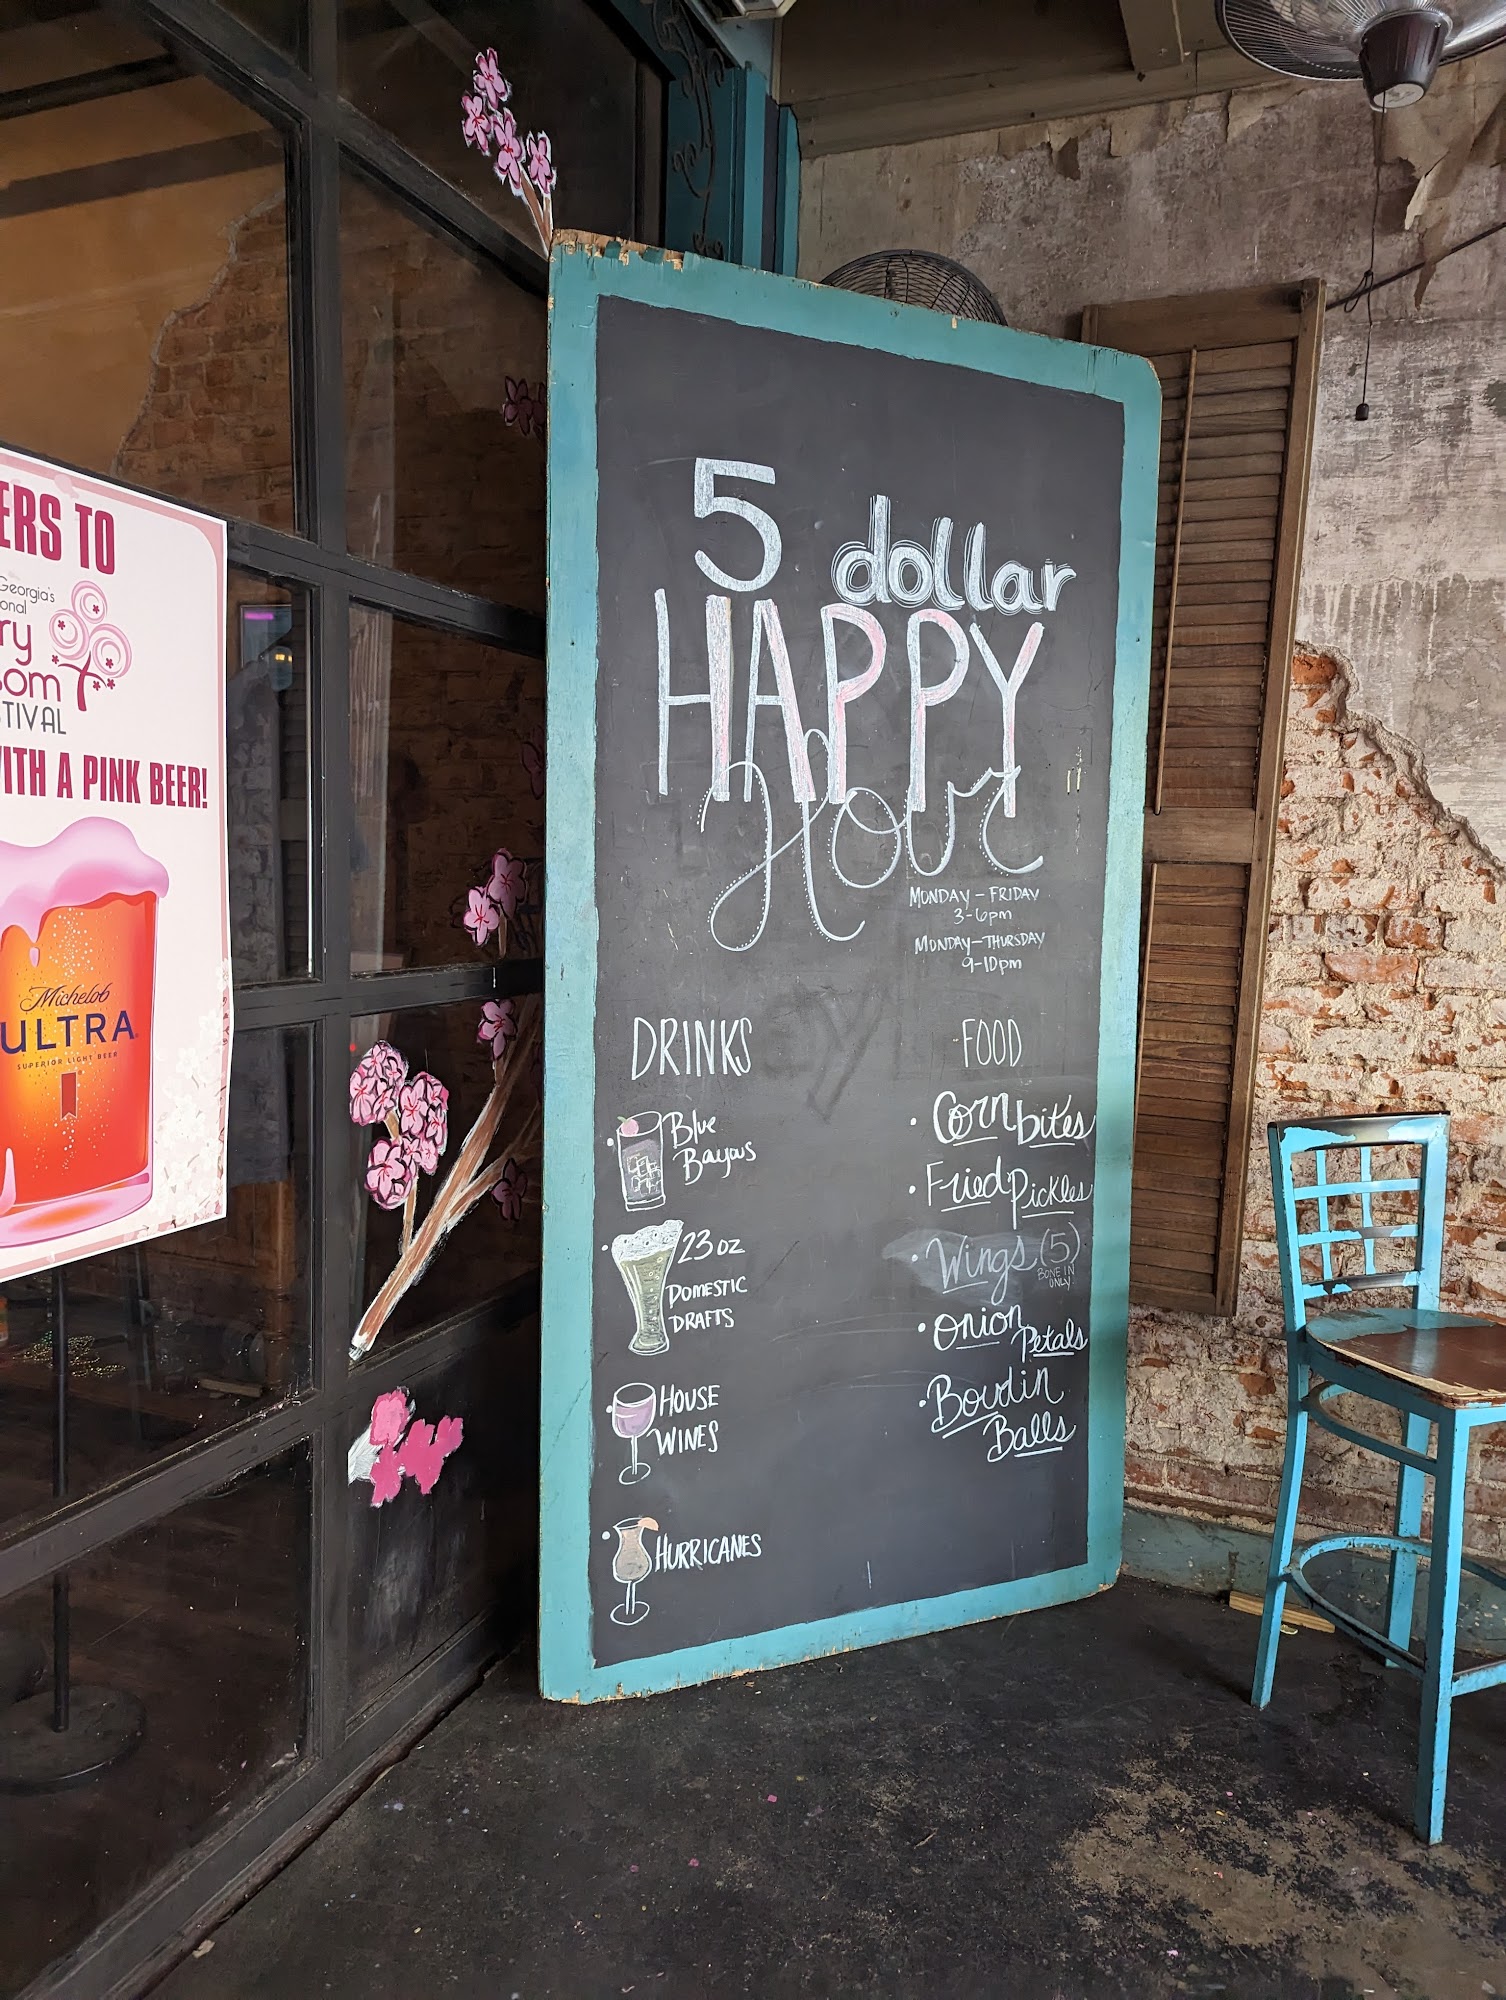 ERS TO
Georgia's
onal
ry
som
TIVAL
WITH A PINK BEER!
Michelob
ULTRA
SUPERIOR LIGHT BEER
5 dollar
HAPPY
Hour
MONDAY - FRIDAY
3-6pm
MONDAY - THURSDAY
9-10pm
DRINKS
Blue
Bayous
23 oz
DOMESTIC
DRAFTS
HOUSE
WINES
HURRICANES
FOOD
• Corn bites
• Fried Pickles
• Wings (5)
BONE IN
ONLY
• Onion
Petals
• Boudin
Balls